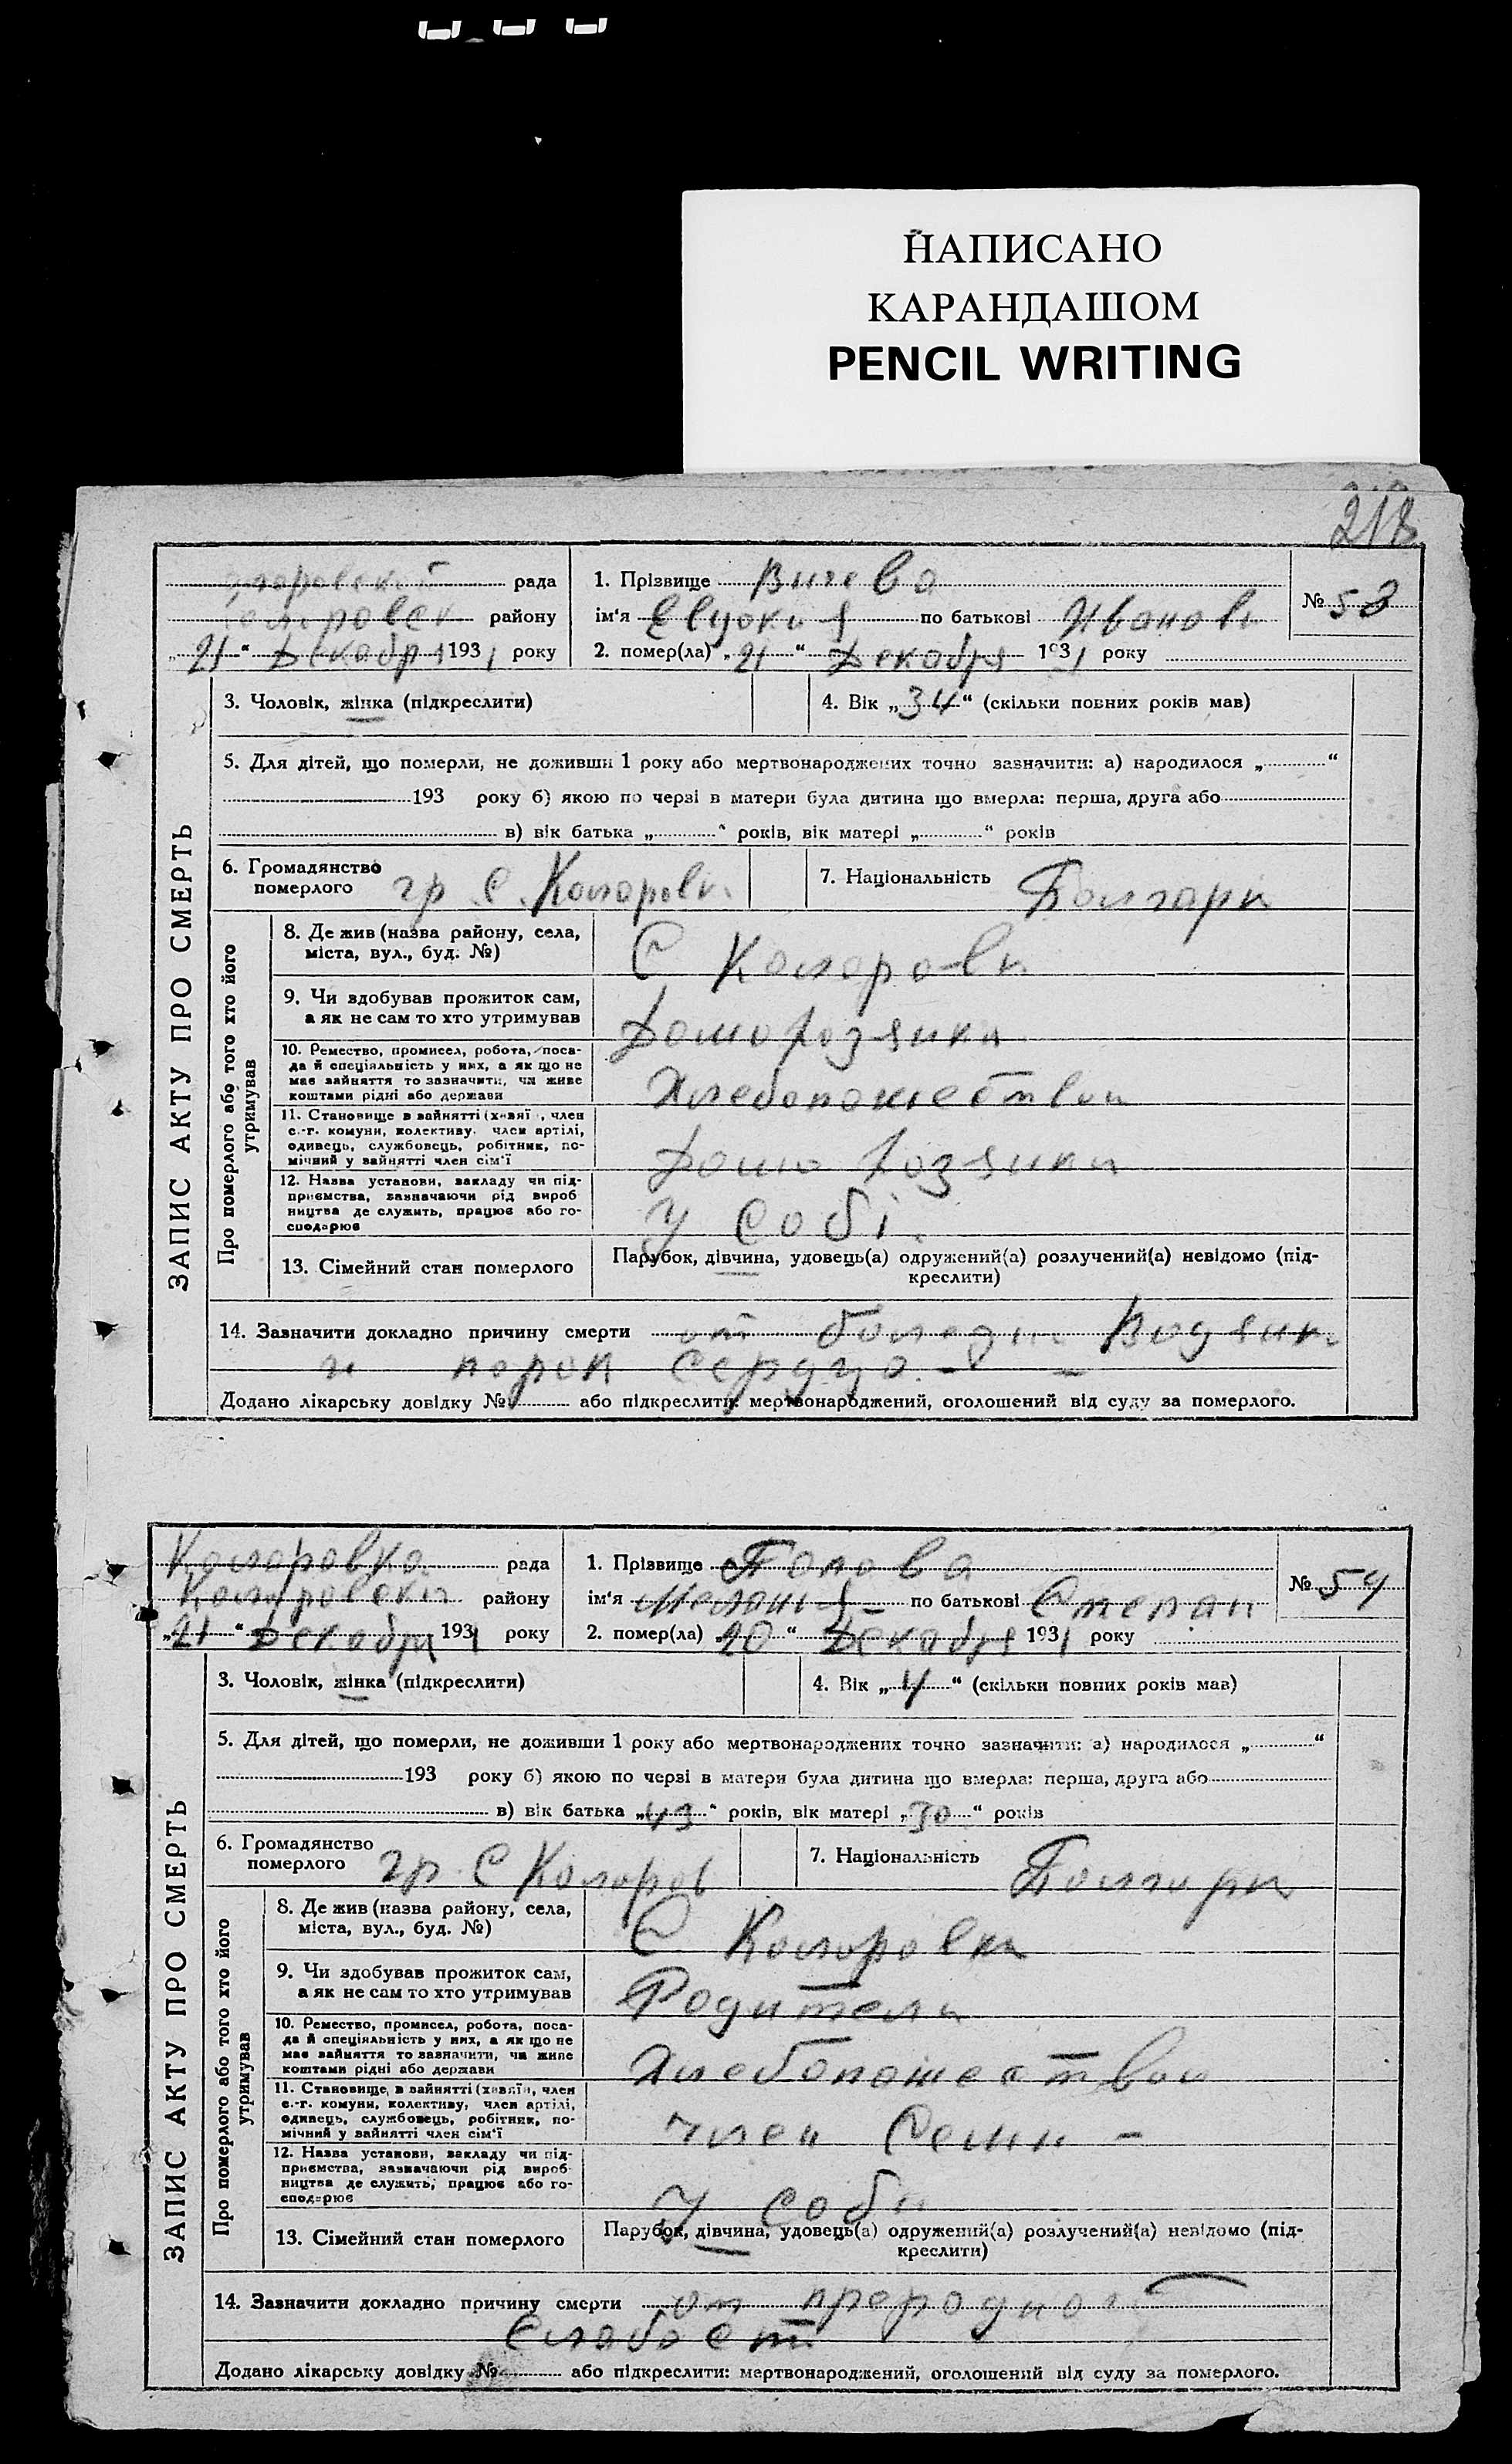 НАПИСАНО
КАРАНДАШОМ
PENCIL WRITING
218
рада
1. Прізвище
району
ім'я Евдокия по батькові Ивановн
№ 53
„21" Декабря 1931 року
2. помер(ла) „21" Декабря 1931 року
3. Чоловік, жінка (підкреслити)
4. Вік „34" (скільки повних років мав)
5. Для дітей, що померли, не доживши 1 року або мертвонароджених точно зазначити: а) народилося „ "
193 року б) якою по черзі в матери була дитина що вмерла: перша, друга або
в) вік батька „ " років, вік матері „ " років
6. Громадянство померлого гр. С. Коларовк.
7. Національність Болгарк
ЗАПИС АКТУ ПРО СМЕРТЬ
Про померлого або того хто його утримував
8. Де жив (назва району, села,
міста, вул., буд. №)
С Коларовки
9. Чи здобував прожиток сам,
а як не сам то хто утримував
Домохозяика
10. Ремество, промисел, робота, поса-
да й спеціяльність у них, а як що не
має зайняття то зазначити, чи живе
коштами рідні або держави
Хлебопашеством
11. Становище в зайнятті (хазяїн, член
с.-г. комуни, колективу, член артілі,
одивець, службовець, робітник, по-
мічний у зайнятті член сім'ї
Домо хозяика
12. Назва установи, закладу чи під-
приємства, зазначаючи рід вироб
ництва де служить, працює або го-
сподарює
У собі.
13. Сімейний стан померлого
Парубок, дівчина, удовець(а) одружений(а) розлучений(а) невідомо (під-
креслити)
14. Зазначити докладно причину смерти от болезн. Водянк.
и порок сердца -
Додано лікарську довідку № або підкреслити: мертвонароджений, оголошений від суду за померлого.
Коларовка рада
1. Прізвище Попова
Коларовски району
ім'я Меланія по батькові Степан
№ 54
„21" Декабря 1931 року
2. помер(ла) „20" Декабря 1931 року
3. Чоловік, жінка (підкреслити)
4. Вік „4" (скільки повних років мав)
5. Для дітей, що померли, не доживши 1 року або мертвонароджених точно зазначити: а) народилося „ "
193 року б) якою по черзі в матери була дитина що вмерла: перша, друга або
в) вік батька „43" років, вік матері „30" років
6. Громадянство померлого гр С Коларов
7. Національність Болгарк
ЗАПИС АКТУ ПРО СМЕРТЬ
Про померлого або того хто його утримував
8. Де жив (назва району, села,
міста, вул., буд. №)
С Коларовка
9. Чи здобував прожиток сам,
а як не сам то хто утримував
Родители
10. Ремество, промисел, робота, поса-
да й спеціяльність у них, а як що не
має зайняття то зазначити, чи живе
коштами рідні або держави
Хлебопашеством
11. Становище в зайнятті (хазяїн, член
с.-г. комуни, колективу, член артілі,
одивець, службовець, робітник, по-
мічний у зайнятті член сім'ї
член семи -
12. Назва установи, закладу чи під-
приємства, зазначаючи рід вироб-
ництва де служить, працює або го-
сподарює
У соби
13. Сімейний стан померлого
Парубок, дівчина, удовець(а) одружений(а) розлучений(а) невідомо (під-
креслити)
14. Зазначити докладно причину смерти от
слабост
Додано лікарську довідку № або підкреслити: мертвонароджений, оголошений від суду за померлого.